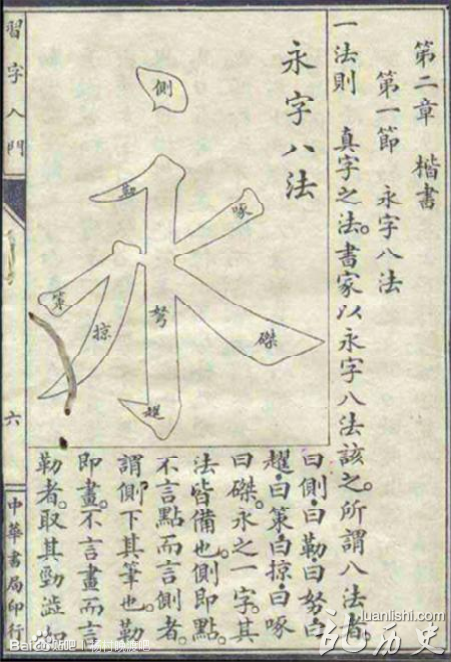 第二章 楷書
第一節 永字八法
一法則 真字之法。書家以永字八法該之。所謂八法者。
曰側。曰勒。曰努。曰
趯。曰策。曰掠。曰啄
曰磔。永之一字。其
法皆備也。側即點。
不言點而言側者。
謂側下其筆也。勒
即畫。不言畫而言
勒者。取其勁澁如
永字八法
側
勒
啄
努
策
掠
磔
趯
永
習字入門
六
中華書局印行
Bai 贴吧 | 杨村晚渡吧
luanlishi.com
乱历史